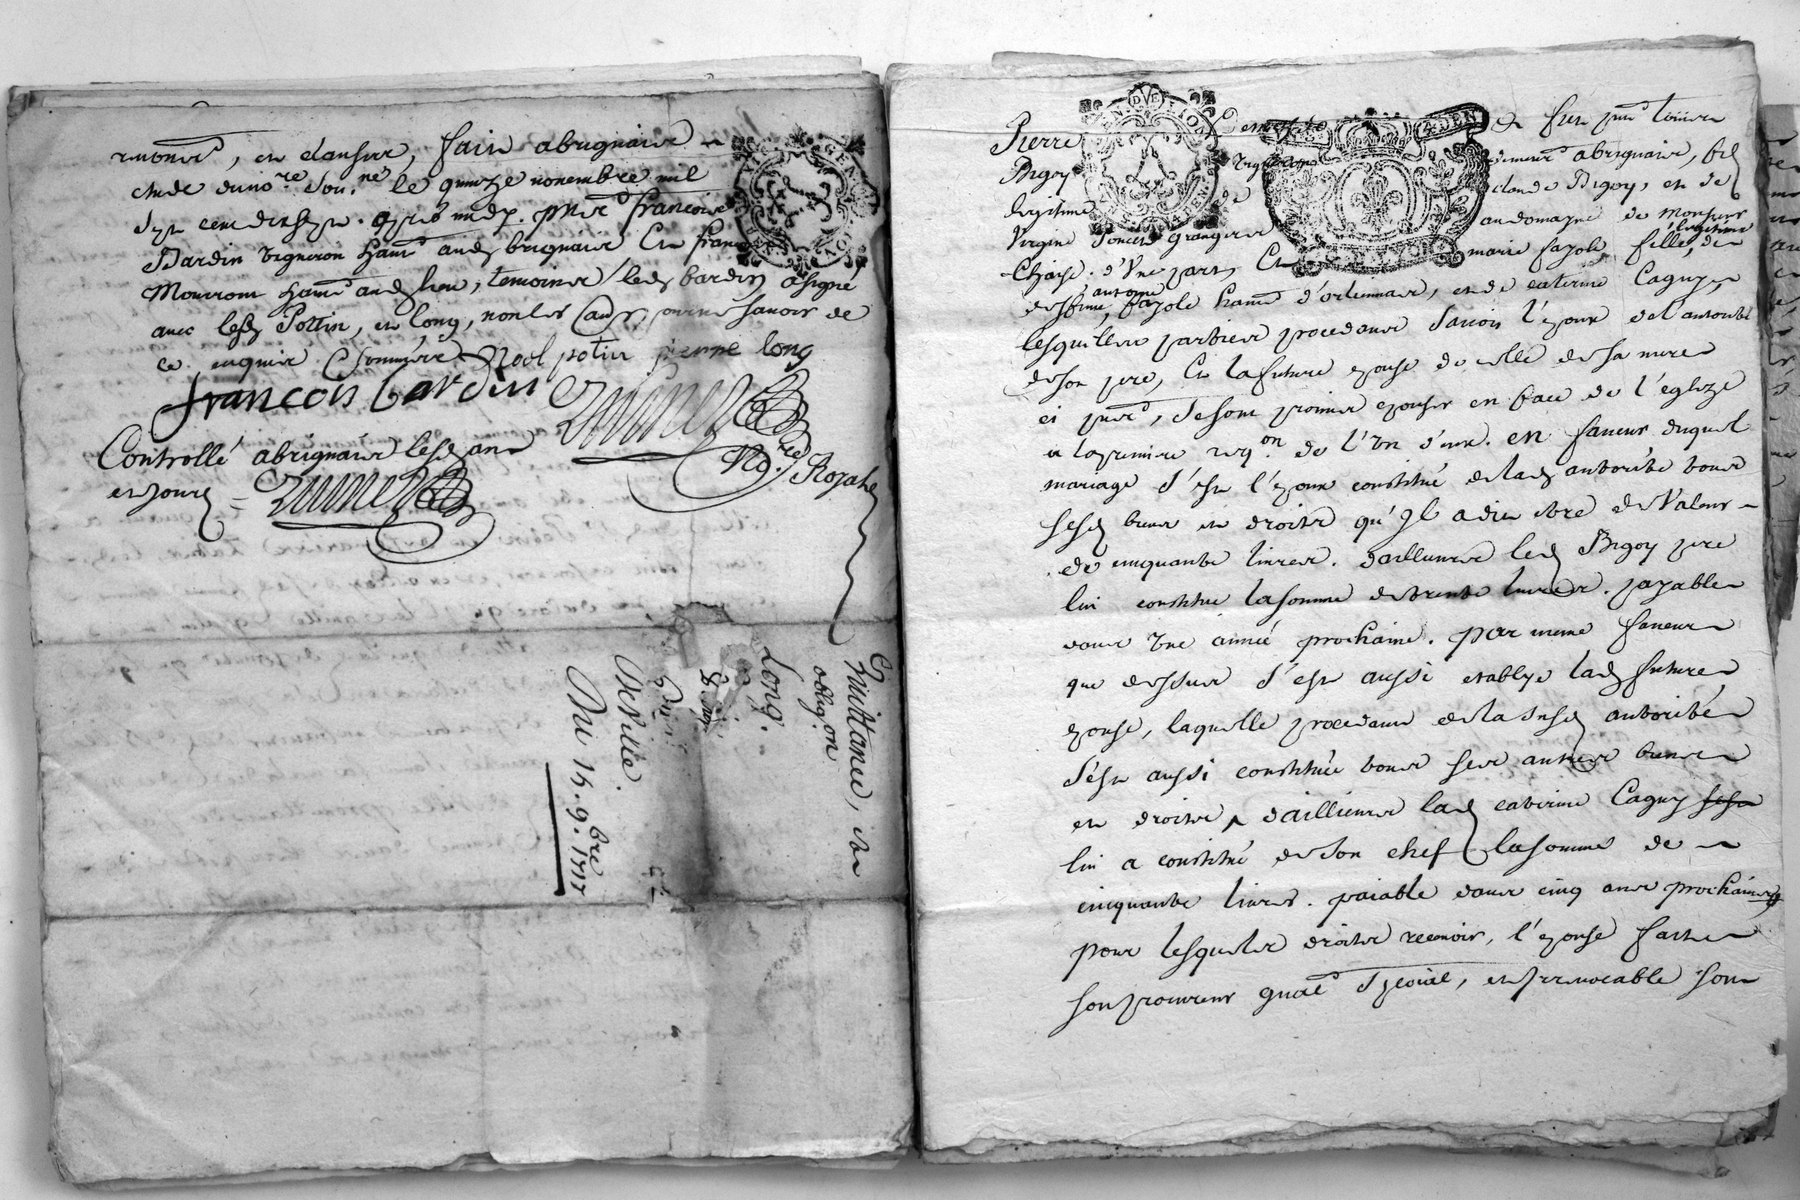 fait a brignais
etude du no.re sou.ne le quinze novembre mil
sept cent dix sept. apres midy. pnts francois
Bardin vigneron hant aud brignais Et
hant aud lieu, temoins / led bardin a signé
avec lesd Pottin, et long, non les
ce enquis Et sommés Noel potin pierre long
francois bardin
No.re Royal
Controllé a brignais lesd an
et jour
Quittance, et
oblig.on
Long.
Deville.
Du 15. 9.bre 1717
GEN
LION
DVE
4 DEN
Pierre en
Bigoy vigneron demeurt a brignais, fils
legitime de claude Bigoy, et de
Virgine Poncet grangers au domayne de Monsieur
Chaize. d'Une part, Et marie fayole fille legitime de
deffunt antoine fayole hant d'orliennas, et de caterine Cagny
lesquelles parties procedans savoir l'epoux de l'autorité
de son pere, Et la future epouse de celle de sa mere
ci pnts, se sont promis epouser en face de l'eglize
a la premiere req.on de l'Un d'eux. en faveur duquel
mariage s'est l'epoux constitué de lad autorité tous
sesd biens et droits qu'Jl a dit etre de Valeur
de cinquante livres. d'ailleurs led Bigoy pere
lui constitue la somme de trente livres. payable
dans Une année prochaine. par meme faveur
que dessus s'est aussi etablye lad future
epouse, laquelle procedant de la susd autorité
s'est aussi constituée tous ses autres biens
et droits, d'ailleurs lad caterine Cagny
lui a constitué de son chef la somme de
cinquante livres. paiable dans cinq ans prochains
pour lesquels droits recevoir, l'epouse fait
son procureur gnal special, et irrevocable son